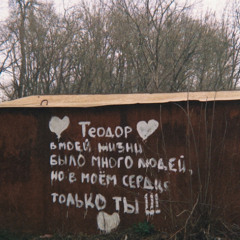 Теодор
в моей жизни
было много людей,
но в моём сердце
только ты !!!